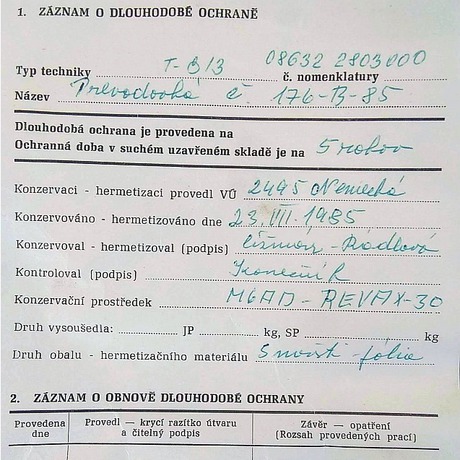 1. ZÁZNAM O DLOUHODOBÉ OCHRANĚ
Typ techniky T-813 č. nomenklatury 08632 2803000
Název Prevodovká č. 176-B-85
Dlouhodobá ochrana je provedena na
Ochranná doba v suchém uzavřeném skladě je na 5 rokov
Konzervaci - hermetizaci provedl VÚ 2495 Nemecká
Konzervováno - hermetizováno dne 23. VIII. 1985
Konzervoval - hermetizoval (podpis)
Kontroloval (podpis)
Konzervační prostředek REVAX-30
Druh vysoušedla: JP kg, SP kg
Druh obalu - hermetizačního materiálu fólie
2. ZÁZNAM O OBNOVĚ DLOUHODOBÉ OCHRANY
Provedena dne
Provedl — krycí razítko útvaru a čitelný podpis
Závěr — opatření (Rozsah provedených prací)